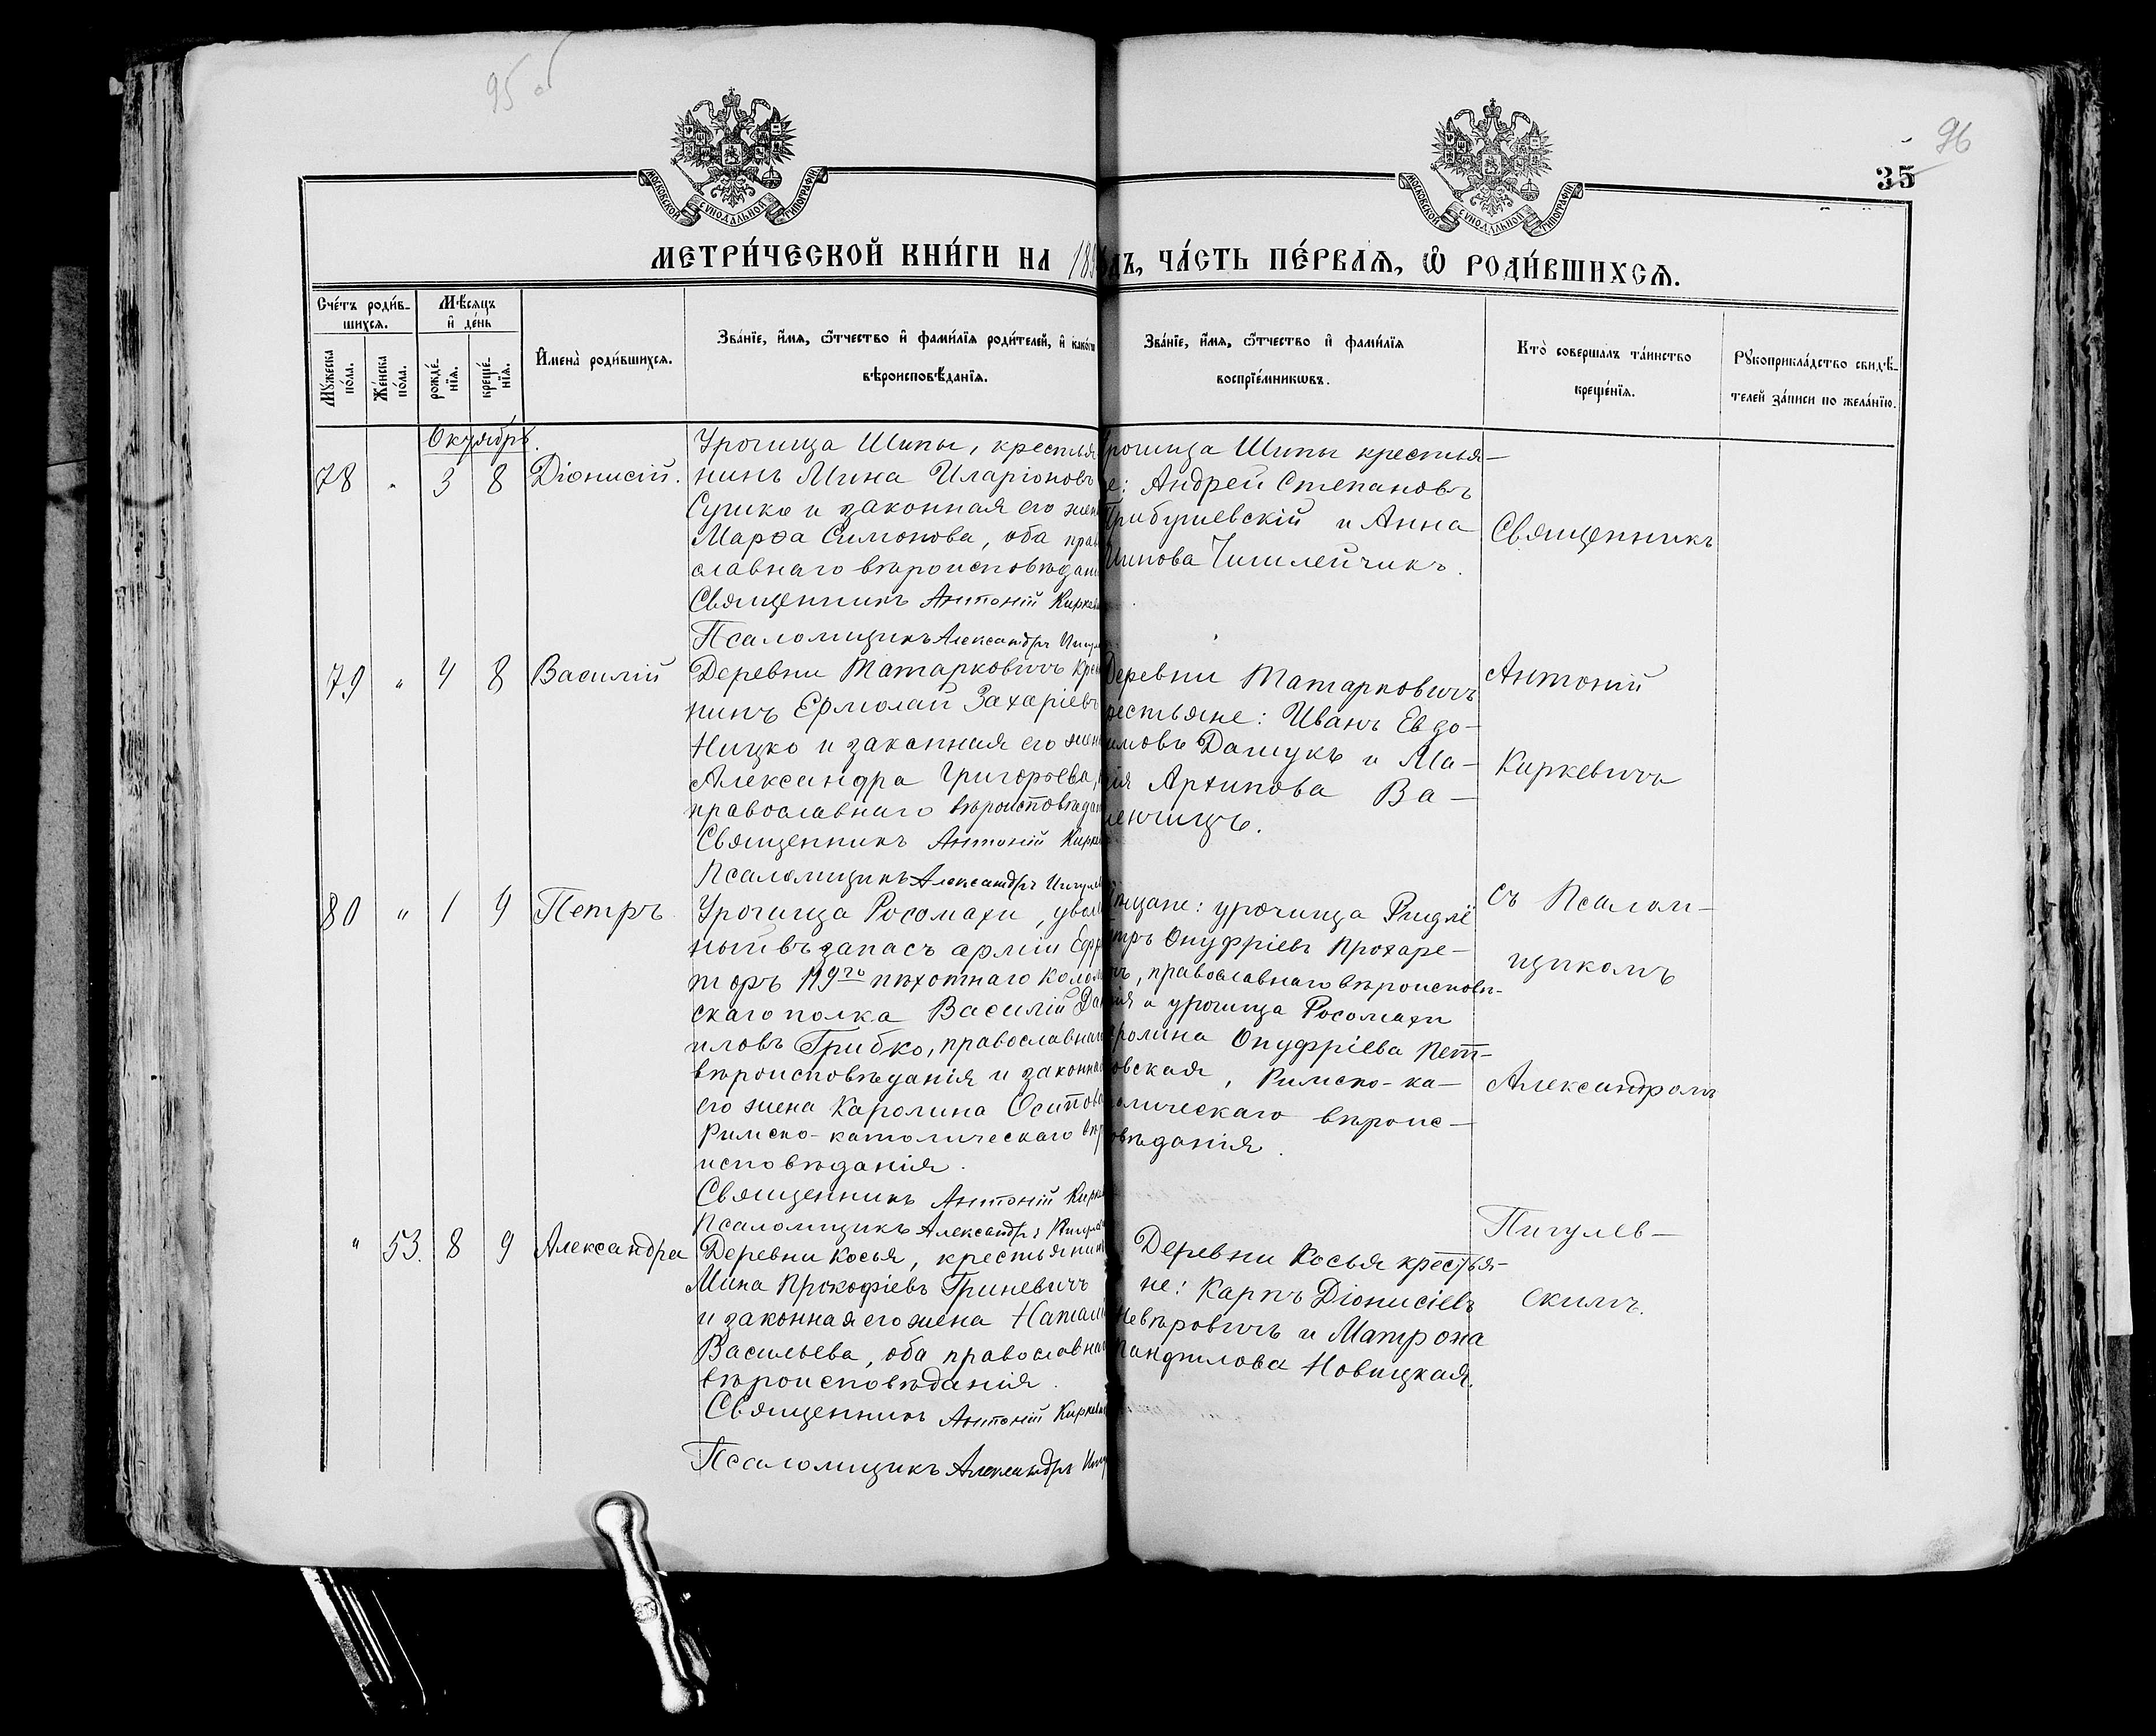 95 об
96
35
МОСКОВСКОЙ СУНОДАЛЬНОЙ ТИПОГРАФІИ
МОСКОВСКОЙ СУНОДАЛЬНОЙ ТИПОГРАФІИ
МЕТРИ́ЧЕСКОЙ КНИ́ГИ НА 189 дъ, ЧА́СТЬ ПЕ́РВАѦ, Ѡ҆ РОДИ́ВШИХСѦ.
Сче́тъ роди́в-
шихсѧ.
Мѣ́сѧцъ
и҆ де́нь
Мꙋ́жеска
по́ла.
Же́нска
по́ла.
рожде́-
нїѧ.
креще́-
нїѧ.
И҆мена̀ роди́вшихсѧ.
Зва́нїе, и҆́мѧ, ѻ҆́тчество и҆ фами́лїѧ роди́телей, и҆ како́гѡ
вѣроисповѣ́данїѧ.
Зва́нїе, и҆́мѧ, ѻ҆́тчество и҆ фами́лїѧ
воспрїе́мникѡвъ.
Кто̀ соверша́лъ та́инство
креще́нїѧ.
Рꙋкоприкла́дство свидѣ́-
телей за́писи по жела́нїю.
Октябрь.
78 " 3 8 Діонисій.
Урочища Шипы, крестья
нинъ Мина Иларіоновъ
Сушко и законная его жен
Марѳа Симонова, оба прав
ославнаго вѣроисповѣдані
Священникъ Антоній Киркев
Псаломщикъ Александръ Пигул
рочища Шипы крестья-
е: Андрей Степановъ
Трибушевскій и Анна
Чишлейчикъ.
79 " 4 8 Василій
Деревни Татарковичъ кре
нинъ Ермолай Захаріевъ
Ницко и законная его жен
Александра Григорьева,
православнаго вѣроисповѣдан
Священникъ Антоній Кирке
Псаломщикъ Александръ Пигулев
Деревни Татарковичъ
рестьяне: Иванъ Евдо-
имовъ Дашукъ и Ма-
рія Архипова Ва-
ленчицъ.
80 " 1 9 Петръ
Урочища Росомахи, увол
ный въ запасъ арміи Ефре
торъ 119го пѣхотнаго Колом
скаго полка Василій Дан
иловъ Грибко, православнаго
вѣроисповѣданія и законная
его жена Каролина Осипова
Римско-католическаго вѣр
исповѣданія.
Священникъ Антоній Кирке
Псаломщикъ Александръ Пигулев
ѣщане: урочища
етръ Онуфріевъ Прохаре-
чъ, православнаго вѣроисповѣ-
нія и урочища Росомахи
аролина Онуфріева Пет-
овская, Римско-ка-
толическаго вѣроис-
овѣданія.
" 53. 8 9 Александра
Деревни Косья, крестьянинъ
Мина Прокофіевъ Гриневичъ
и законная его жена Натал
Васильева, оба православнаго
вѣроисповѣданія.
Священникъ Антоній Киркев
Псаломщикъ Александръ Пигу
Деревни Косья крестья-
не: Карпъ Діонисіевъ
Невѣровичъ и Матрона
Панфилова Новицкая.
Священникъ
Антоній
Киркевичъ
съ Псалом-
щикомъ
Александромъ
Пигулев-
скимъ.